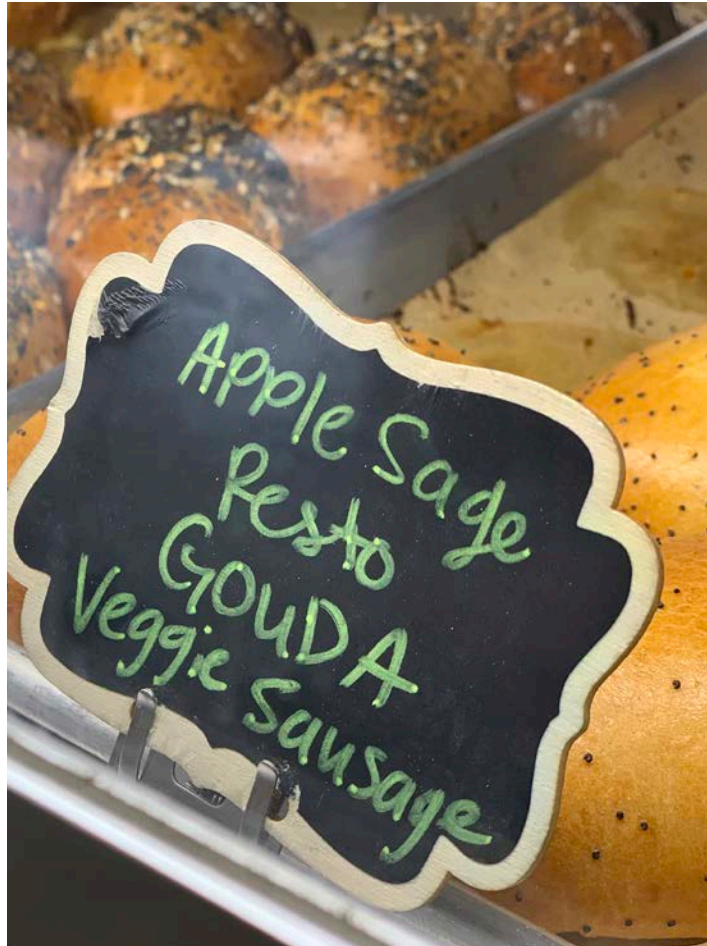 Apple Sage
Pesto
GOUDA
Veggie Sausage